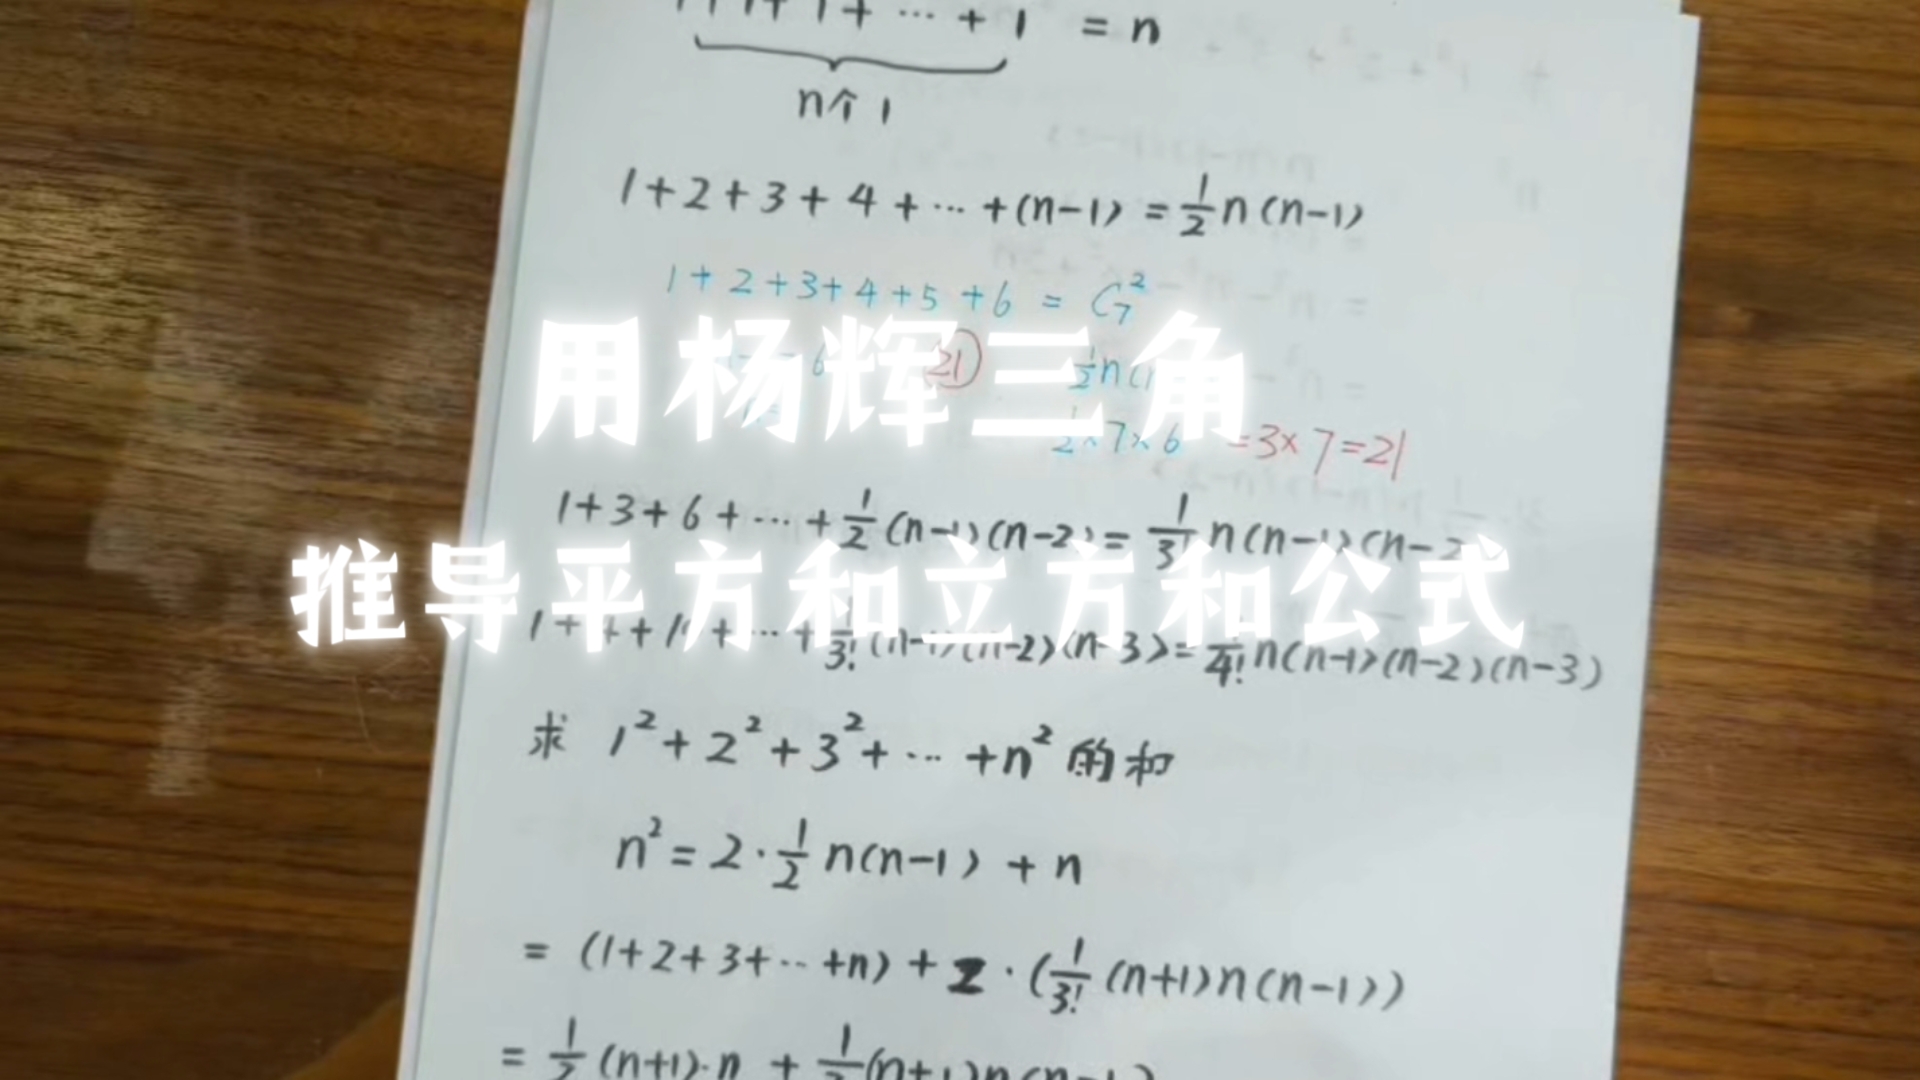 1+1+1+⋯+1 = n
n个1
1+2+3+4+⋯+(n-1) = 1/2 n(n-1)
1+2+3+4+5+6 = C₇²
用杨辉三角
21
1/2 n(
1/2×7×6 =3×7=21
1+3+6+⋯+1/2(n-1)(n-2) = 1/3! n(n-1)(n-2)
推导平方和立方和公式
1+4+1 +⋯+1/3!(n-1)(n-2)(n-3) = 1/4! n(n-1)(n-2)(n-3)
求 1²+2²+3²+⋯+n² 的和
n² = 2·1/2 n(n-1) + n
= (1+2+3+⋯+n) + 2·(1/3! (n+1)n(n-1))
= 1/2 (n+1)·n + 1/3 (n+1)n(n-1)